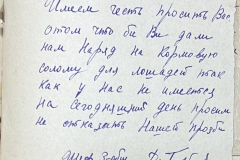 Имеем честь просить Вас
отом что би Ви дали
нам Наряд на Кормовую
солому для лошадей так
как у нас не имеется
на сегодняшной день просим
не отказать Нашей прозби